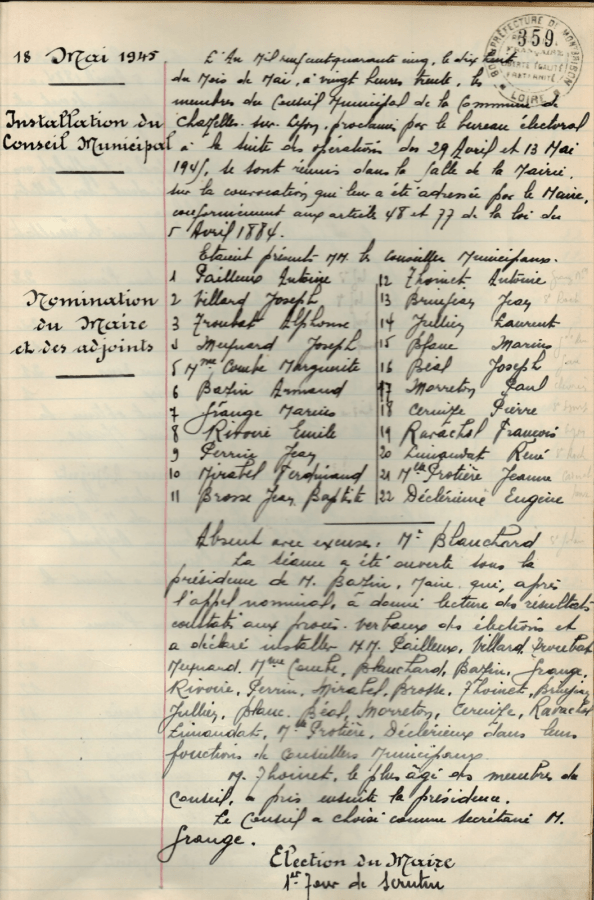 SOUS-PRÉFECTURE DE MONTBRISON
359
LIBERTÉ EGALITÉ
FRATERNITÉ
* LOIRE *
18 Mai 1945
Installation du
Conseil Municipal
Nomination
du Maire
et des adjoints
L'An Mil neuf cent quarante cinq, le dix huit
du Mois de Mai, à vingt heures trente, les
membres du Conseil Municipal de la Commune de
Chazelles-sur-Lyon, proclamés par le bureau électoral
à la suite des opérations des 29 Avril et 13 Mai
1945, se sont réunis dans la salle de la Mairie,
sur la convocation qui leur a été adressée par le Maire,
conformément aux article 48 et 77 de la loi du
5 Avril 1884.
Etaient présents MM. les conseillers Municipaux.
1 Pailleux Antoine
2 Villard Joseph
3 Troubat Alphonse
4 Meynard Joseph
5 Mme Combe Marguerite
6 Bazin Armand
7 Grange Marius
8 Rivoire Emile
9 Perrin Jean
10 Mirabel Ferdinand
11 Brosse Jean Baptiste
12 Thoinet Antoine
13 Jean
14 Jullien Laurent
15 Blanc Marius
16 Béal Joseph
17 Morreton Paul
18 Ceruize Pierre
19 Ravachol François
20 Limandat René
21 Mlle Protière Jeanne
22 Déclérieux Eugène
Absent avec excuse. Mr Blanchard
La séance a été ouverte sous la
présidence de M. Bazin, Maire qui, après
l'appel nominal, a donné lecture des résultats
constatés aux procès-verbaux des élections et
a déclaré installer MM. Pailleux, Villard, Troubat
Meynard, Mme Combe, Blanchard, Bazin, Grange,
Rivoire, Perrin, Mirabel, Brosse, Thoinet,
Jullien, Blanc, Béal, Morreton, Ceruize, Ravachol
Limandat, Mlle Protière, Déclérieux dans leurs
fonctions de Conseillers Municipaux.
M. Thoinet, le plus âgé des membres du
Conseil, a pris ensuite la présidence.
Le Conseil a choisi comme secrétaire M.
Grange.
Election du Maire
1er Tour de Scrutin